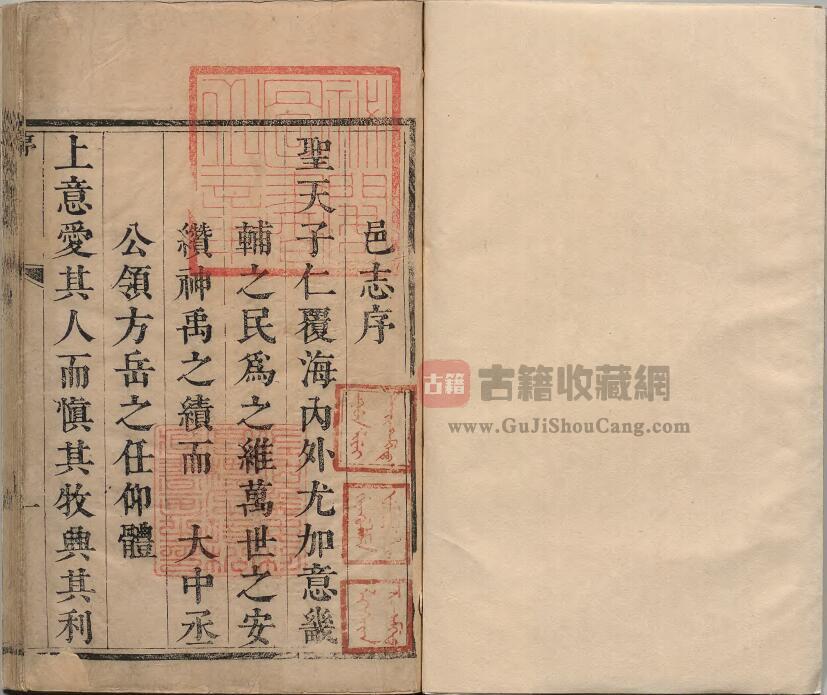 邑志序
聖天子仁覆海內外尤加意畿
輔之民爲之維萬世之安
纘神禹之績而 大中丞
公領方岳之任仰體
上意愛其人而慎其牧典其利
序
一
古籍 古籍收藏網
www.GuJiShouCang.com